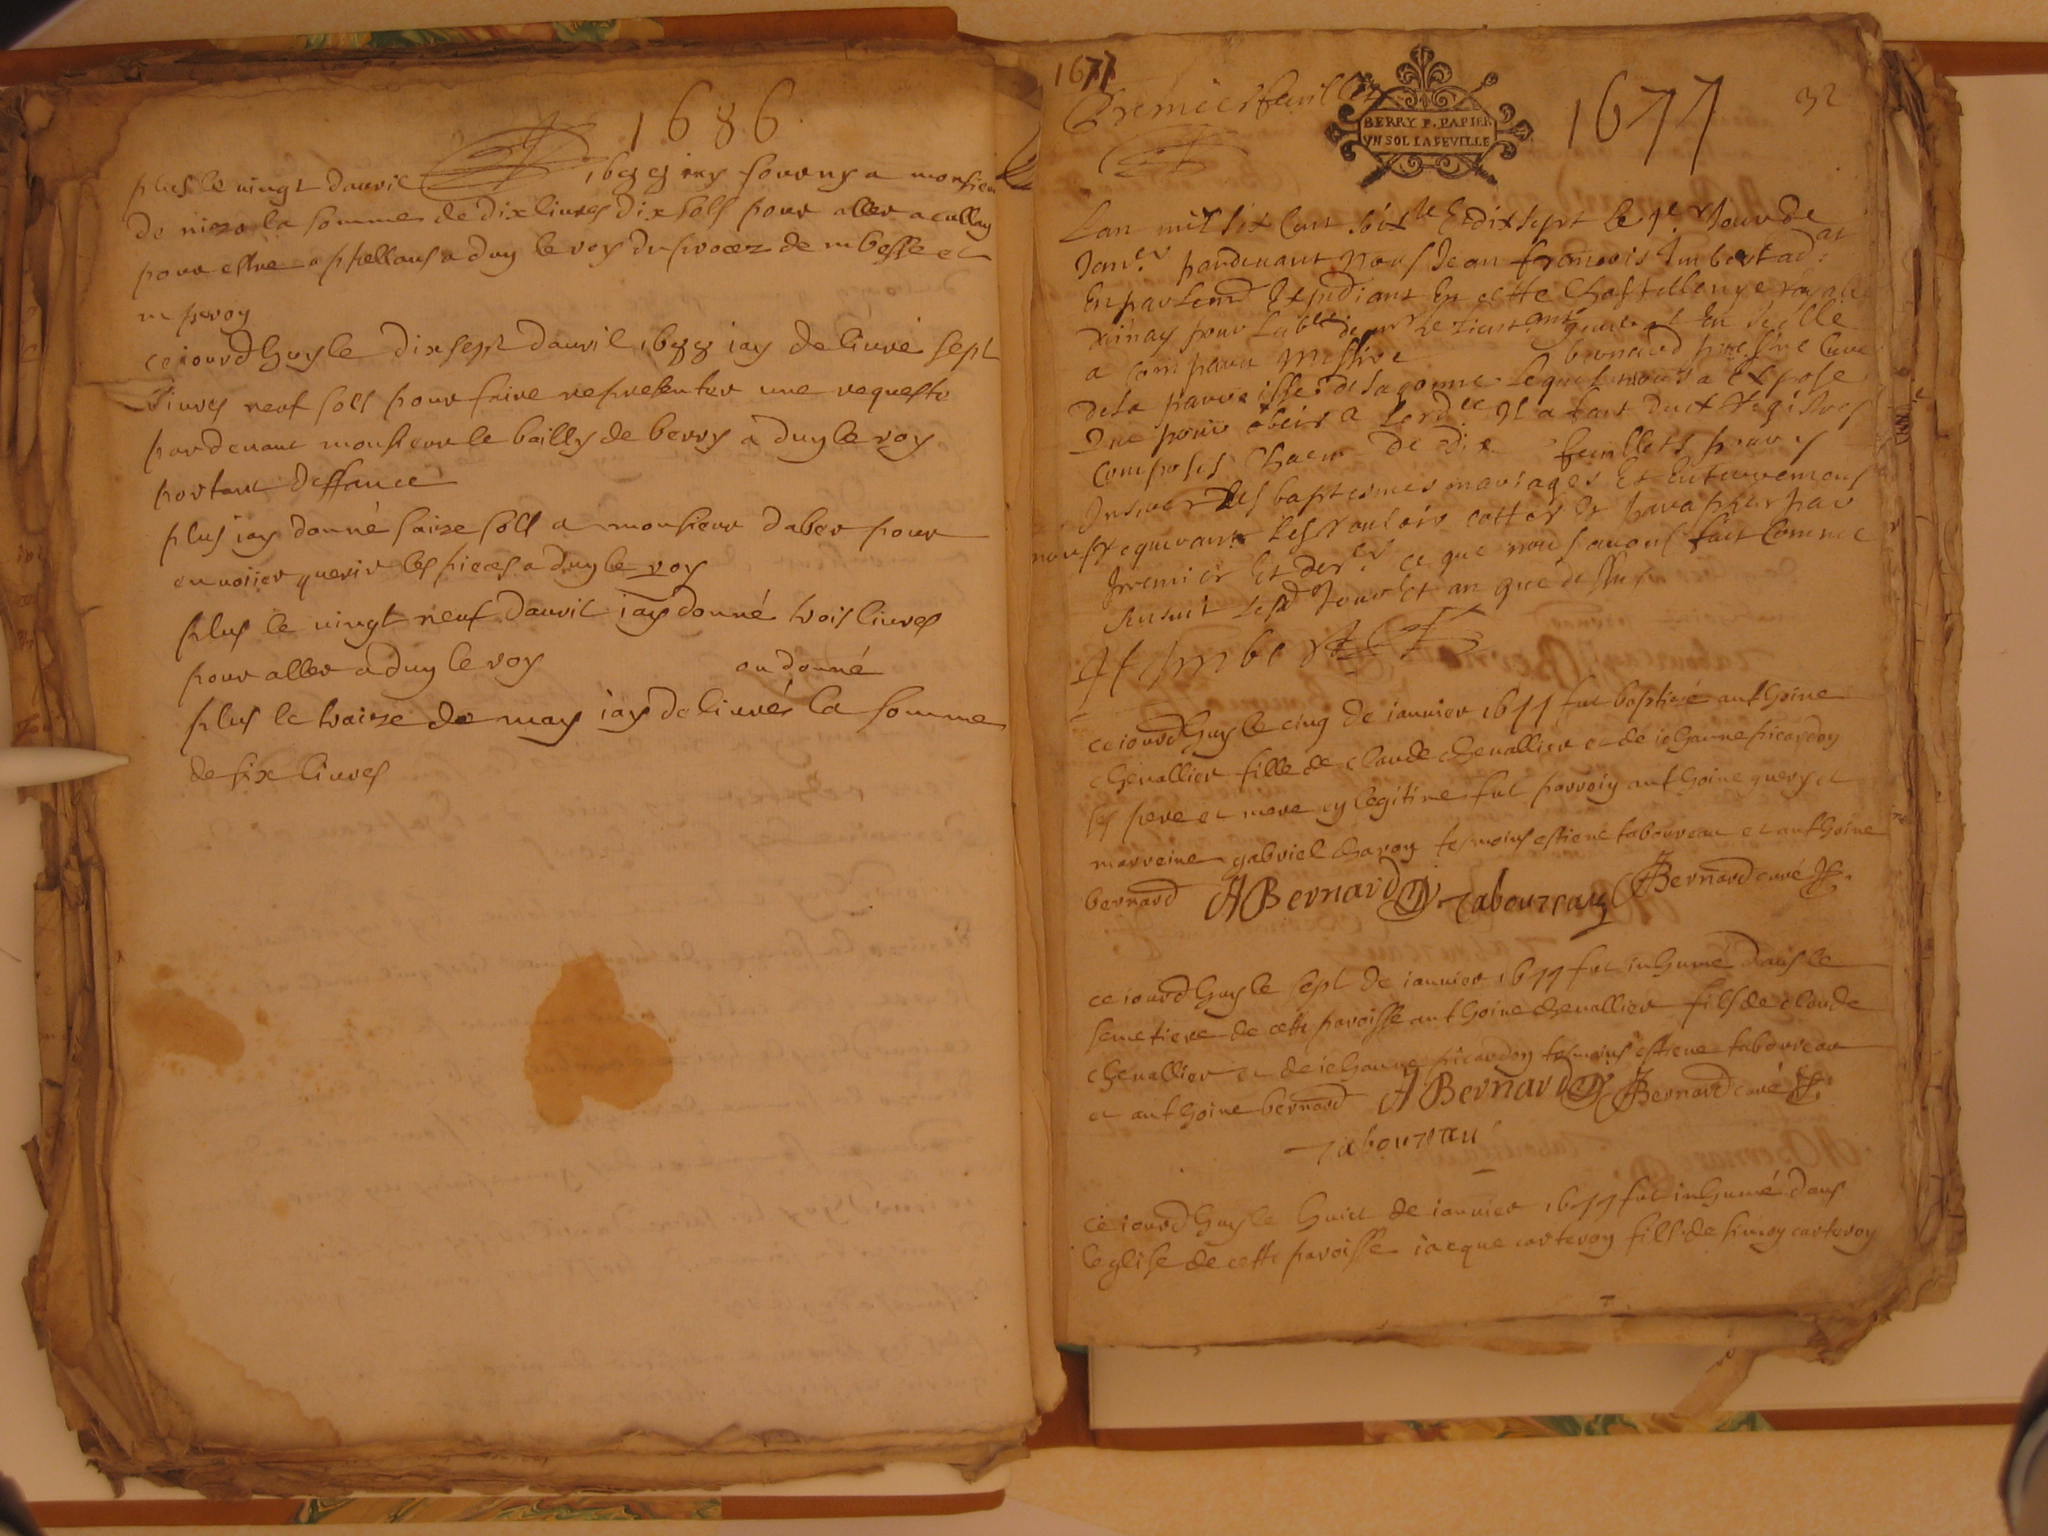 1686
plus le vingt dauril 1688 iay fourny a monsieur
de la somme de dix liures dix sols pour aller a cullay
pour estre appellans a duy le roy du procez de et
ce iourdhuy le dix sept dauril 1688 iay deliuré sept
liures neuf sols pour faire representer une requeste
pardeuant monsieur le bailly de berry a duy le roy
portant deffance
plus iay donné saize solz a monsieur daber pour
enuoiier querir les pieces a duy le roy
plus le vingt neuf dauril iay donné trois liures
pour aller a duy le roy ou donné
plus le traize de may iay deliuré la somme
de six liures
1677
Premier feuillet
BERRY P. PAPIER
VN SOL LA FEVILLE
1677
32
Lan mil six cent soixte et dix sept le Jour de
Janer pardeuant Nous Jean francois Imbert ad
En parlemt Expediant En cette Chastellenye royalle
pour le Lieutent general En Icelle
a comparu Messire bernard prestre Cure
de la parroisse de lequel nous a Expose
Que pour obeir a il a fait deux Registres
composes Chacun de dix feuillets pour y
Inserer les baptesmes mariages Et Enterremens
nous requerant les vouloir cotter et parapher par
premier Et derer ce que nous auons fait comme
Ensuit lesd Jour Et an que dessus
Imbert
ce iourdhuy le cinq de ianuier 1677 fut baptizé anthoine
cheuallier fille de claude cheuallier et de iehanne picardon
ses pere et mere en legitime fut parroin anthoine query et
marreine gabriel charon tesmoins estiene taboureau et anthoine
bernard ABernard Taboureau Bernard curé
ce iourdhuy le sept de ianuier 1677 fut inhumé dans le
semetiere de cette paroisse anthoine cheuallier fils de claude
cheuallier et de iehanne picardon tesmoins estiene taboureau
et anthoine bernard ABernard Bernard curé
Taboureau
ce iourdhuy le huict de ianuier 1677 fut inhumé dans
leglise de cette paroisse iacque carteron fills de simon carteron